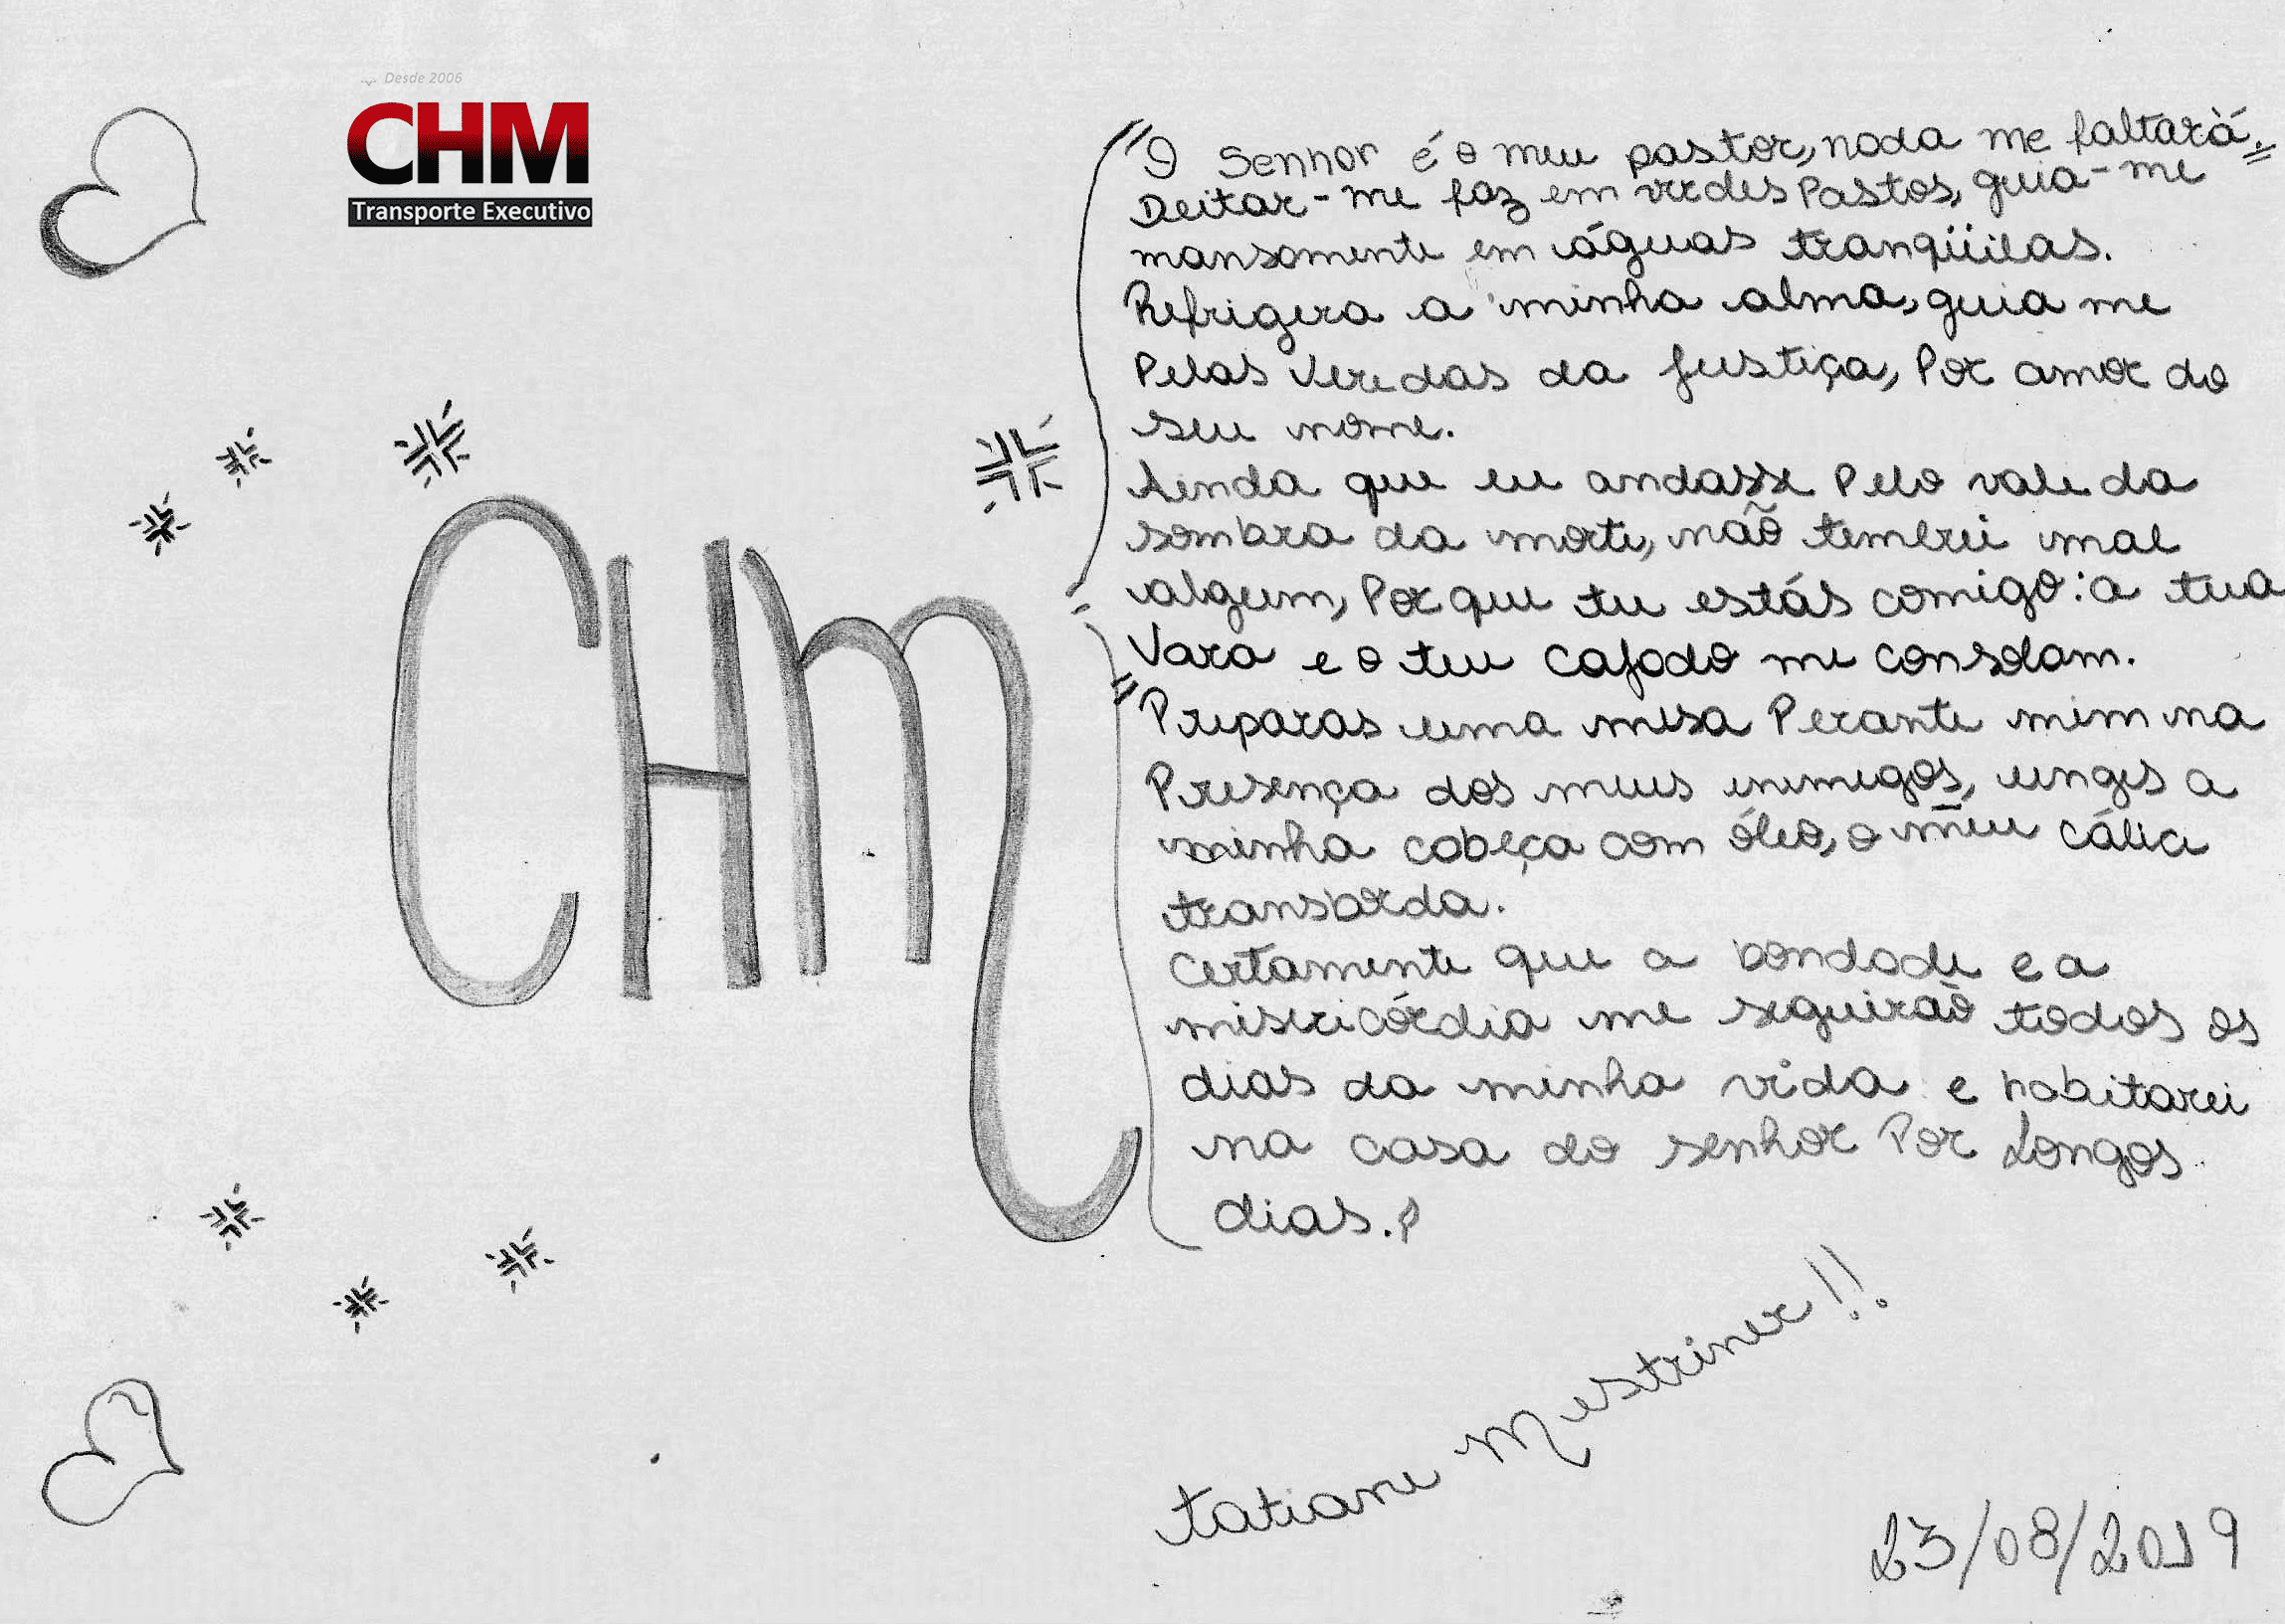 Desde 2006
CHM
Transporte Executivo
CHM
"O Senhor é o meu pastor, nada me faltará."
Deitar-me faz em verdes Pastos, guia-me
mansamente em águas tranqüilas.
Refrigera a minha alma, guia me
Pelas Veredas da justiça, Por amor do
seu nome.
Ainda que eu andasse Pelo vale da
sombra da morte, não temerei mal
algum, Por que tu estás comigo: a tua
Vara e o teu cajado me consolam.
"Preparas uma mesa Perante mim na
Presença dos meus inimigos, unges a
minha cabeça com óleo, o meu cálice
transborda.
Certamente que a bondade e a
misericórdia me seguirão todos os
dias da minha vida e habitarei
na casa do senhor Por Longos
dias.
Tatiane Mestriner!!
23/08/2019